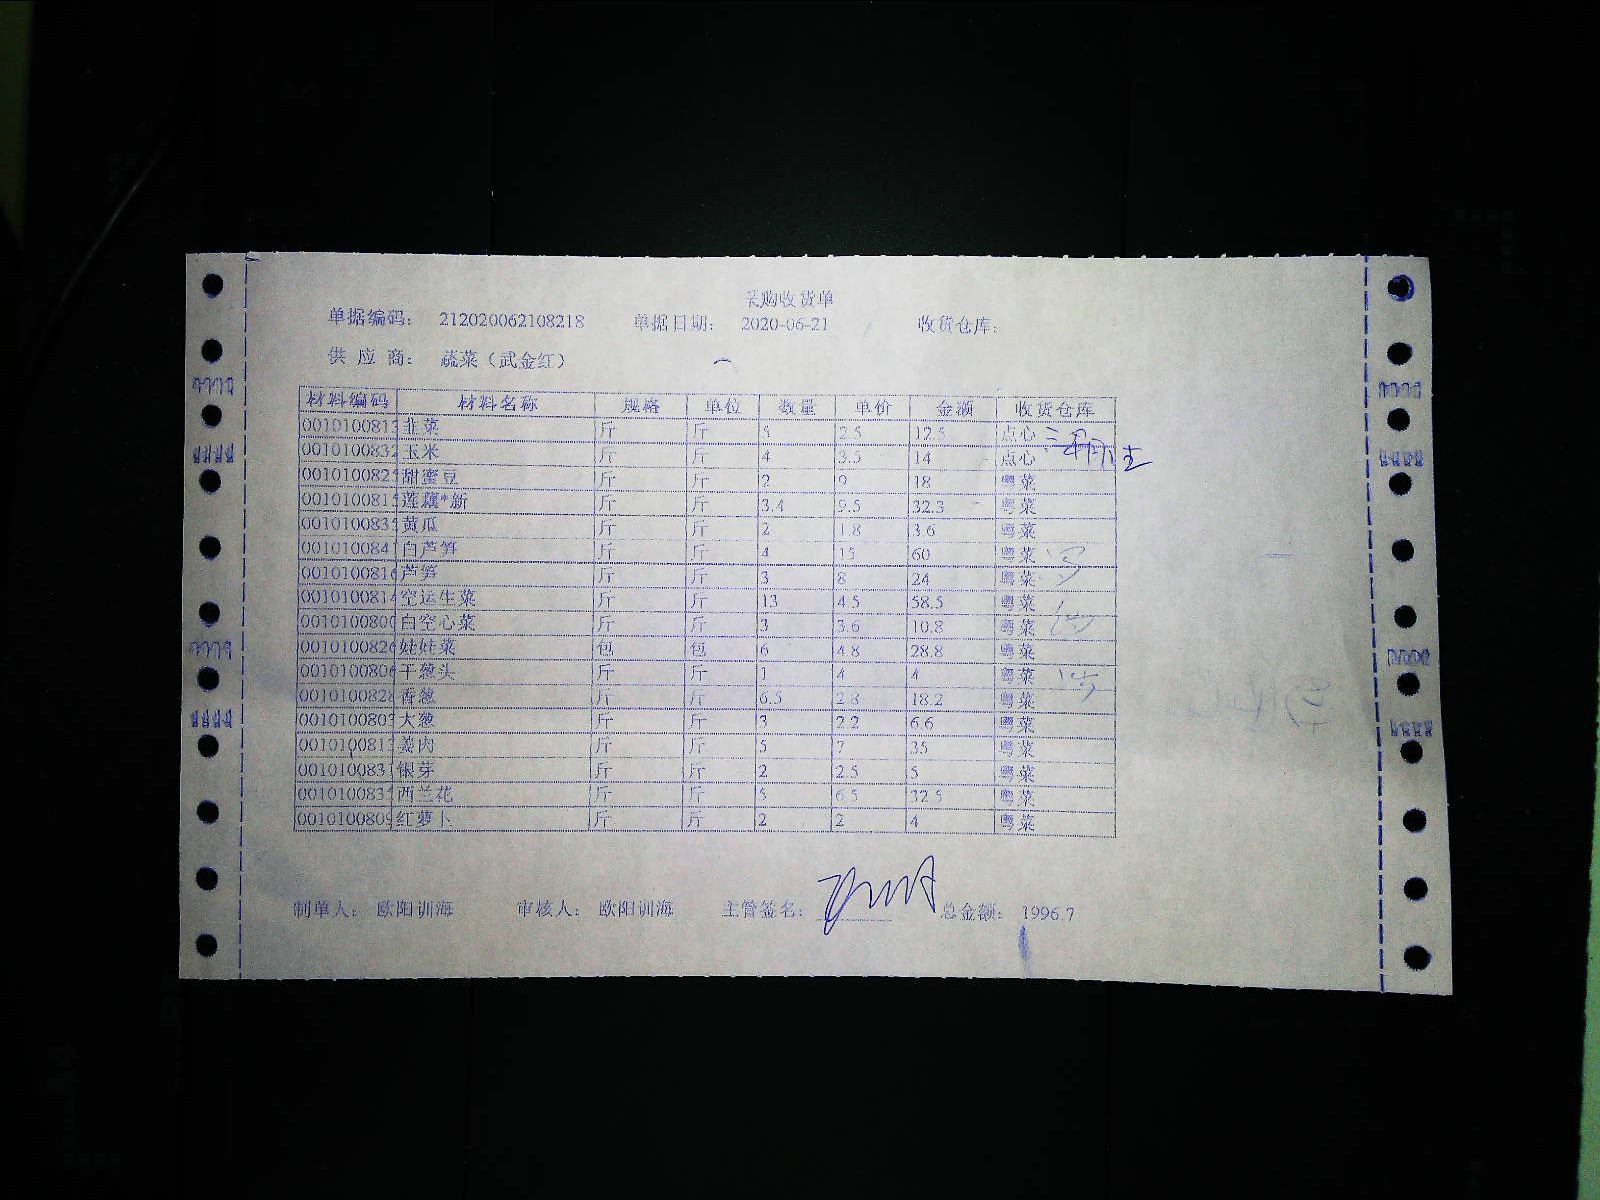 采购收货单
单据编码： 212020062108218 单据日期： 2020-06-21 收货仓库：
供 应 商： 蔬菜（武金红）
材料编码 材料名称 规格 单位 数量 单价 金额 收货仓库
0010100813 韭菜 斤 斤 5 2.5 12.5 点心
0010100832 玉米 斤 斤 4 3.5 14 点心
001010082 甜蜜豆 斤 斤 2 9 18 粤菜
001010081 莲藕*新 斤 斤 3.4 9.5 32.3 粤菜
001010083 黄瓜 斤 斤 2 1.8 3.6 粤菜
001010084 白芦笋 斤 斤 4 15 60 粤菜
001010081 芦笋 斤 斤 3 8 24 粤菜
001010081 空运生菜 斤 斤 13 4.5 58.5 粤菜
001010080 白空心菜 斤 斤 3 3.6 10.8 粤菜
001010082 娃娃菜 包 包 6 4.8 28.8 粤菜
001010080 干葱头 斤 斤 1 4 4 粤菜
001010082 香葱 斤 斤 6.5 2.8 18.2 粤菜
001010080 大葱 斤 斤 3 2.2 6.6 粤菜
001010081 姜肉 斤 斤 5 7 35 粤菜
001010083 银芽 斤 斤 2 2.5 5 粤菜
001010083 西兰花 斤 斤 5 6.5 32.5 粤菜
001010080 红萝卜 斤 斤 2 2 4 粤菜
制单人： 欧阳训海 审核人： 欧阳训海 主管签名： 总金额： 1996.7